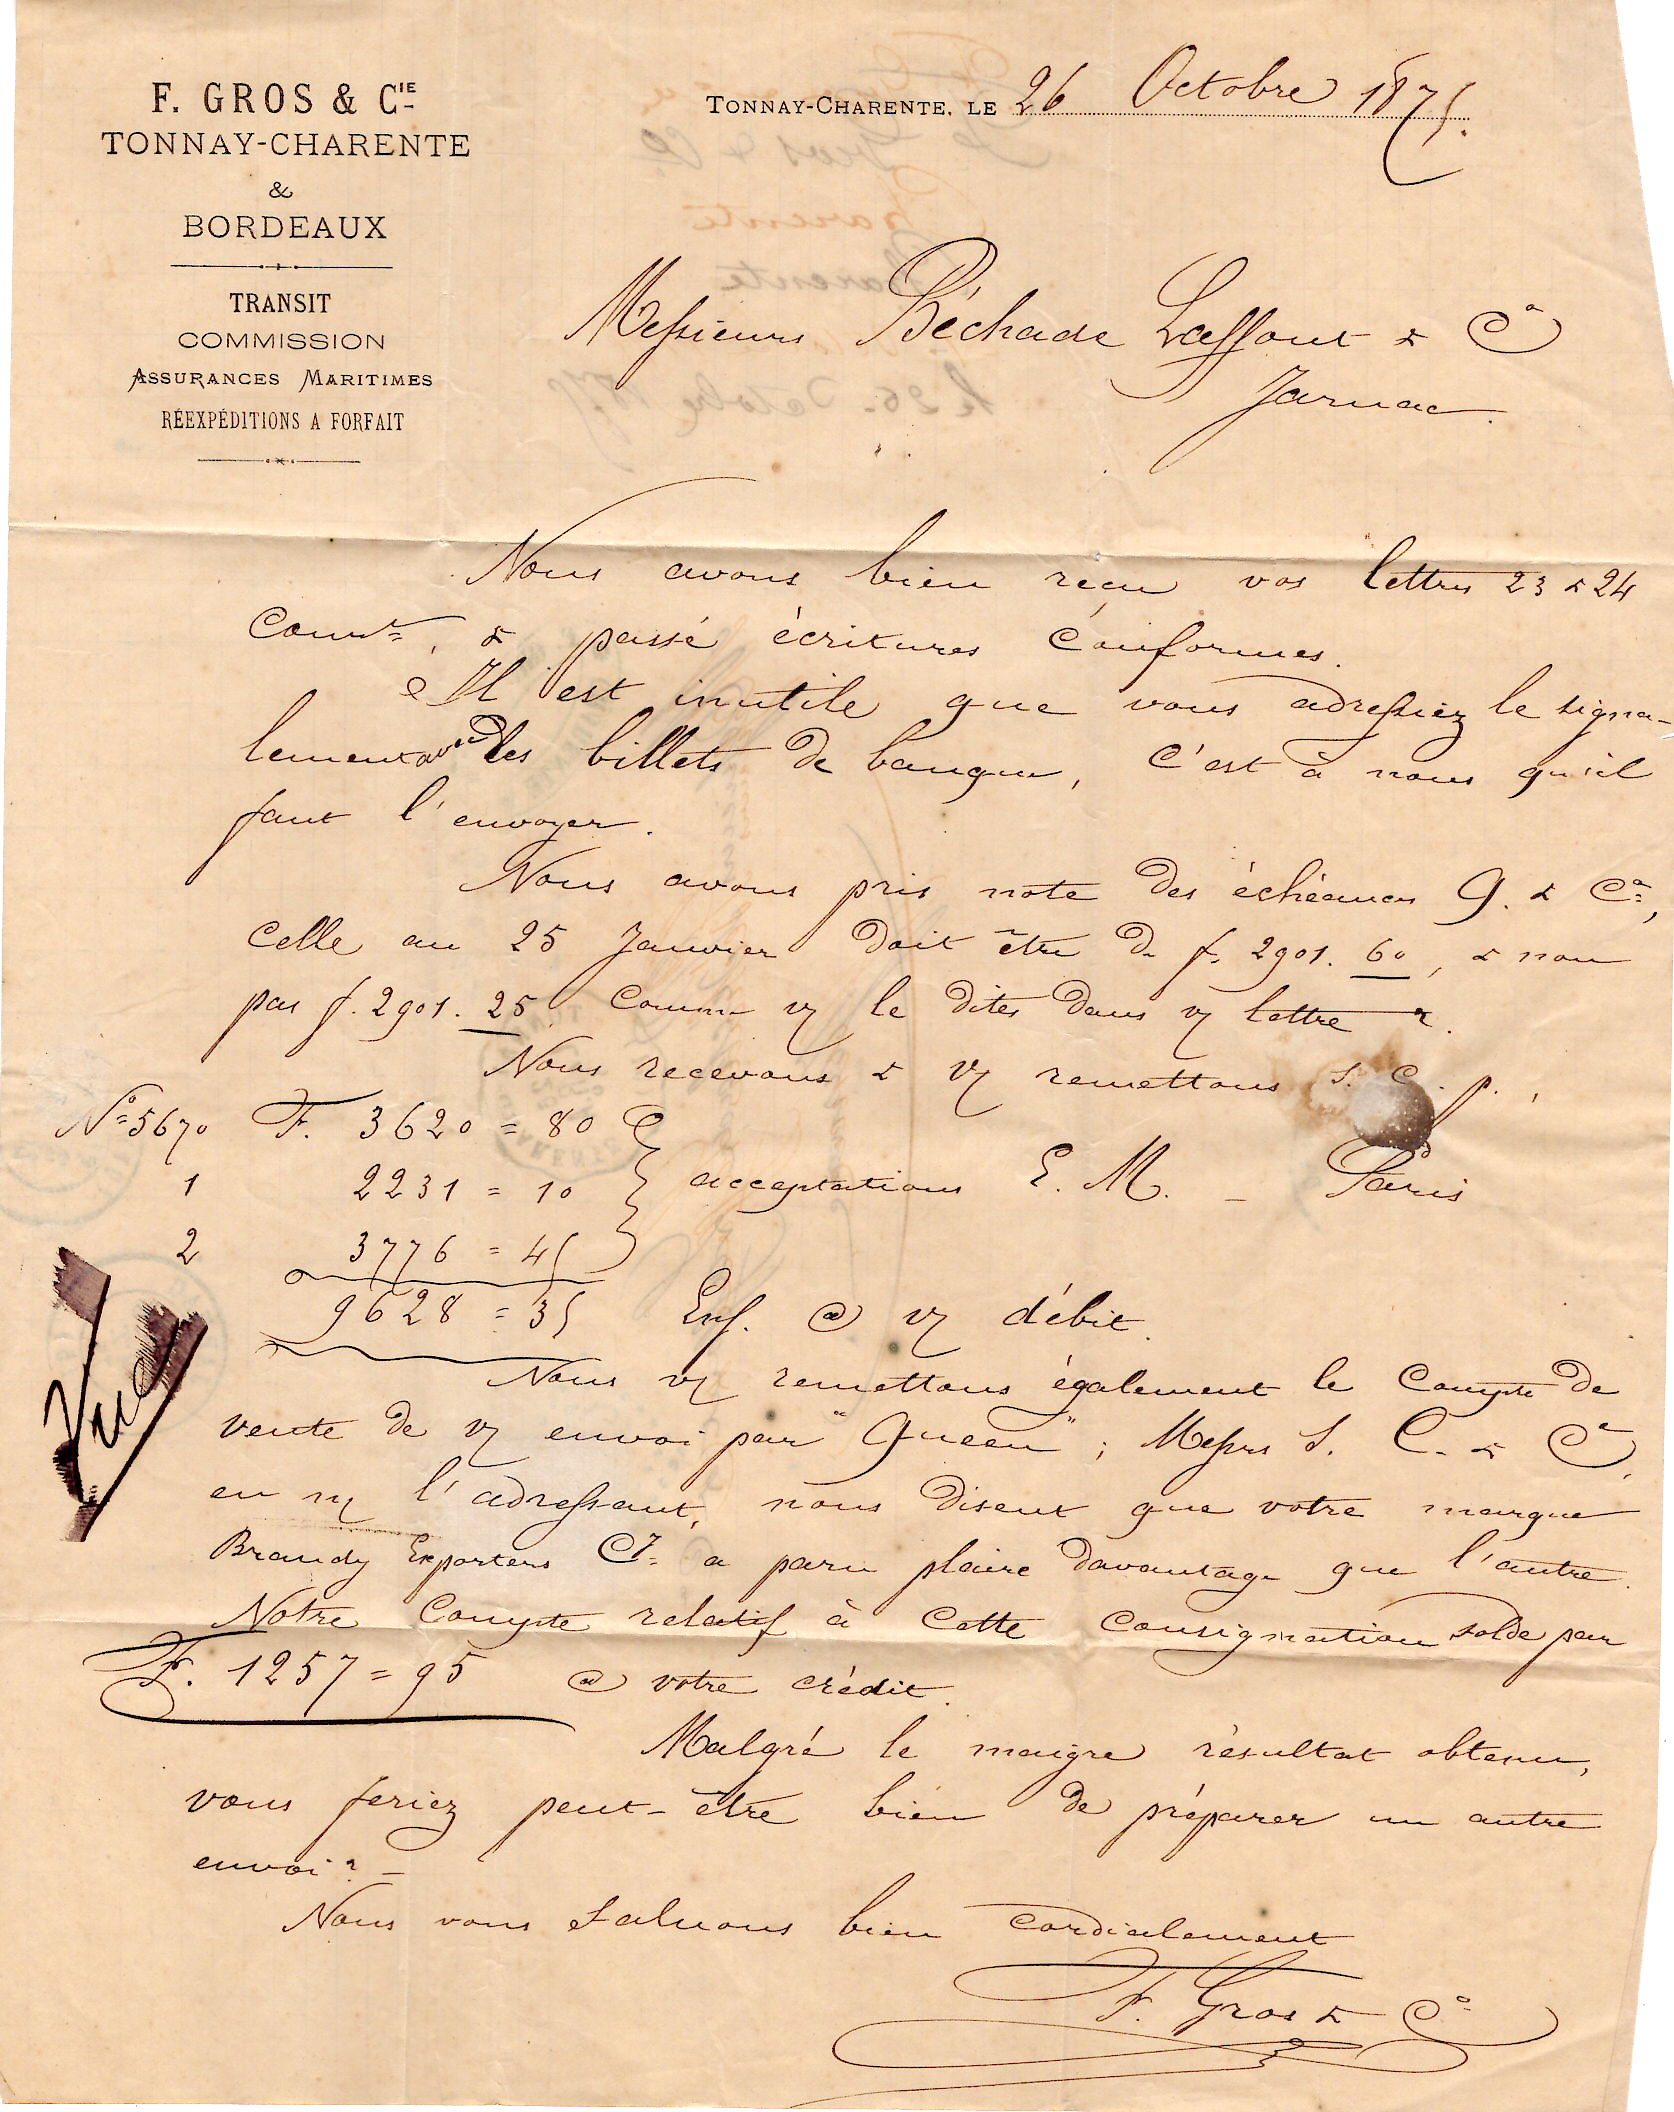 F. GROS & CIE
TONNAY-CHARENTE
&
BORDEAUX
TRANSIT
COMMISSION
ASSURANCES MARITIMES
RÉEXPÉDITIONS A FORFAIT
TONNAY-CHARENTE, LE 26 Octobre 1875.
Messieurs Béchade Laffont & Co
Jarnac.
Nous avons bien reçu vos lettres 23 & 24
Court, & passé écritures conformes.
Il est inutile que vous adressiez le signa-
lement avec les billets de banque, c'est à nous qu'il
faut l'envoyer.
Nous avons pris note des échéances G. & Co,
celle au 25 Janvier doit être de f. 2901. 60, & non
pas f. 2901. 25 comme v/ le dites dans v/ lettre
Nous recevons & v/ remettons s. c. p.,
No 5670 F. 3620 = 80
1 2231 = 10 acceptations E. M. - Paris
2 3776 = 45
9628 = 35 Ens. @ v/ débit.
Nous v/ remettons également le Compte de
vente de v/ envoi par "Queen"; Messrs S. C. & Co,
en n/ l'adressant, nous disent que votre marque
Brandy Exporters Cy a paru plaire davantage que l'autre.
Notre Compte relatif à cette consignation solde par
F. 1257 = 95 @ votre crédit.
Malgré le maigre résultat obtenu,
vous feriez peut-être bien de préparer un autre
envoi? -
Nous vous saluons bien cordialement
F. Gros & Co